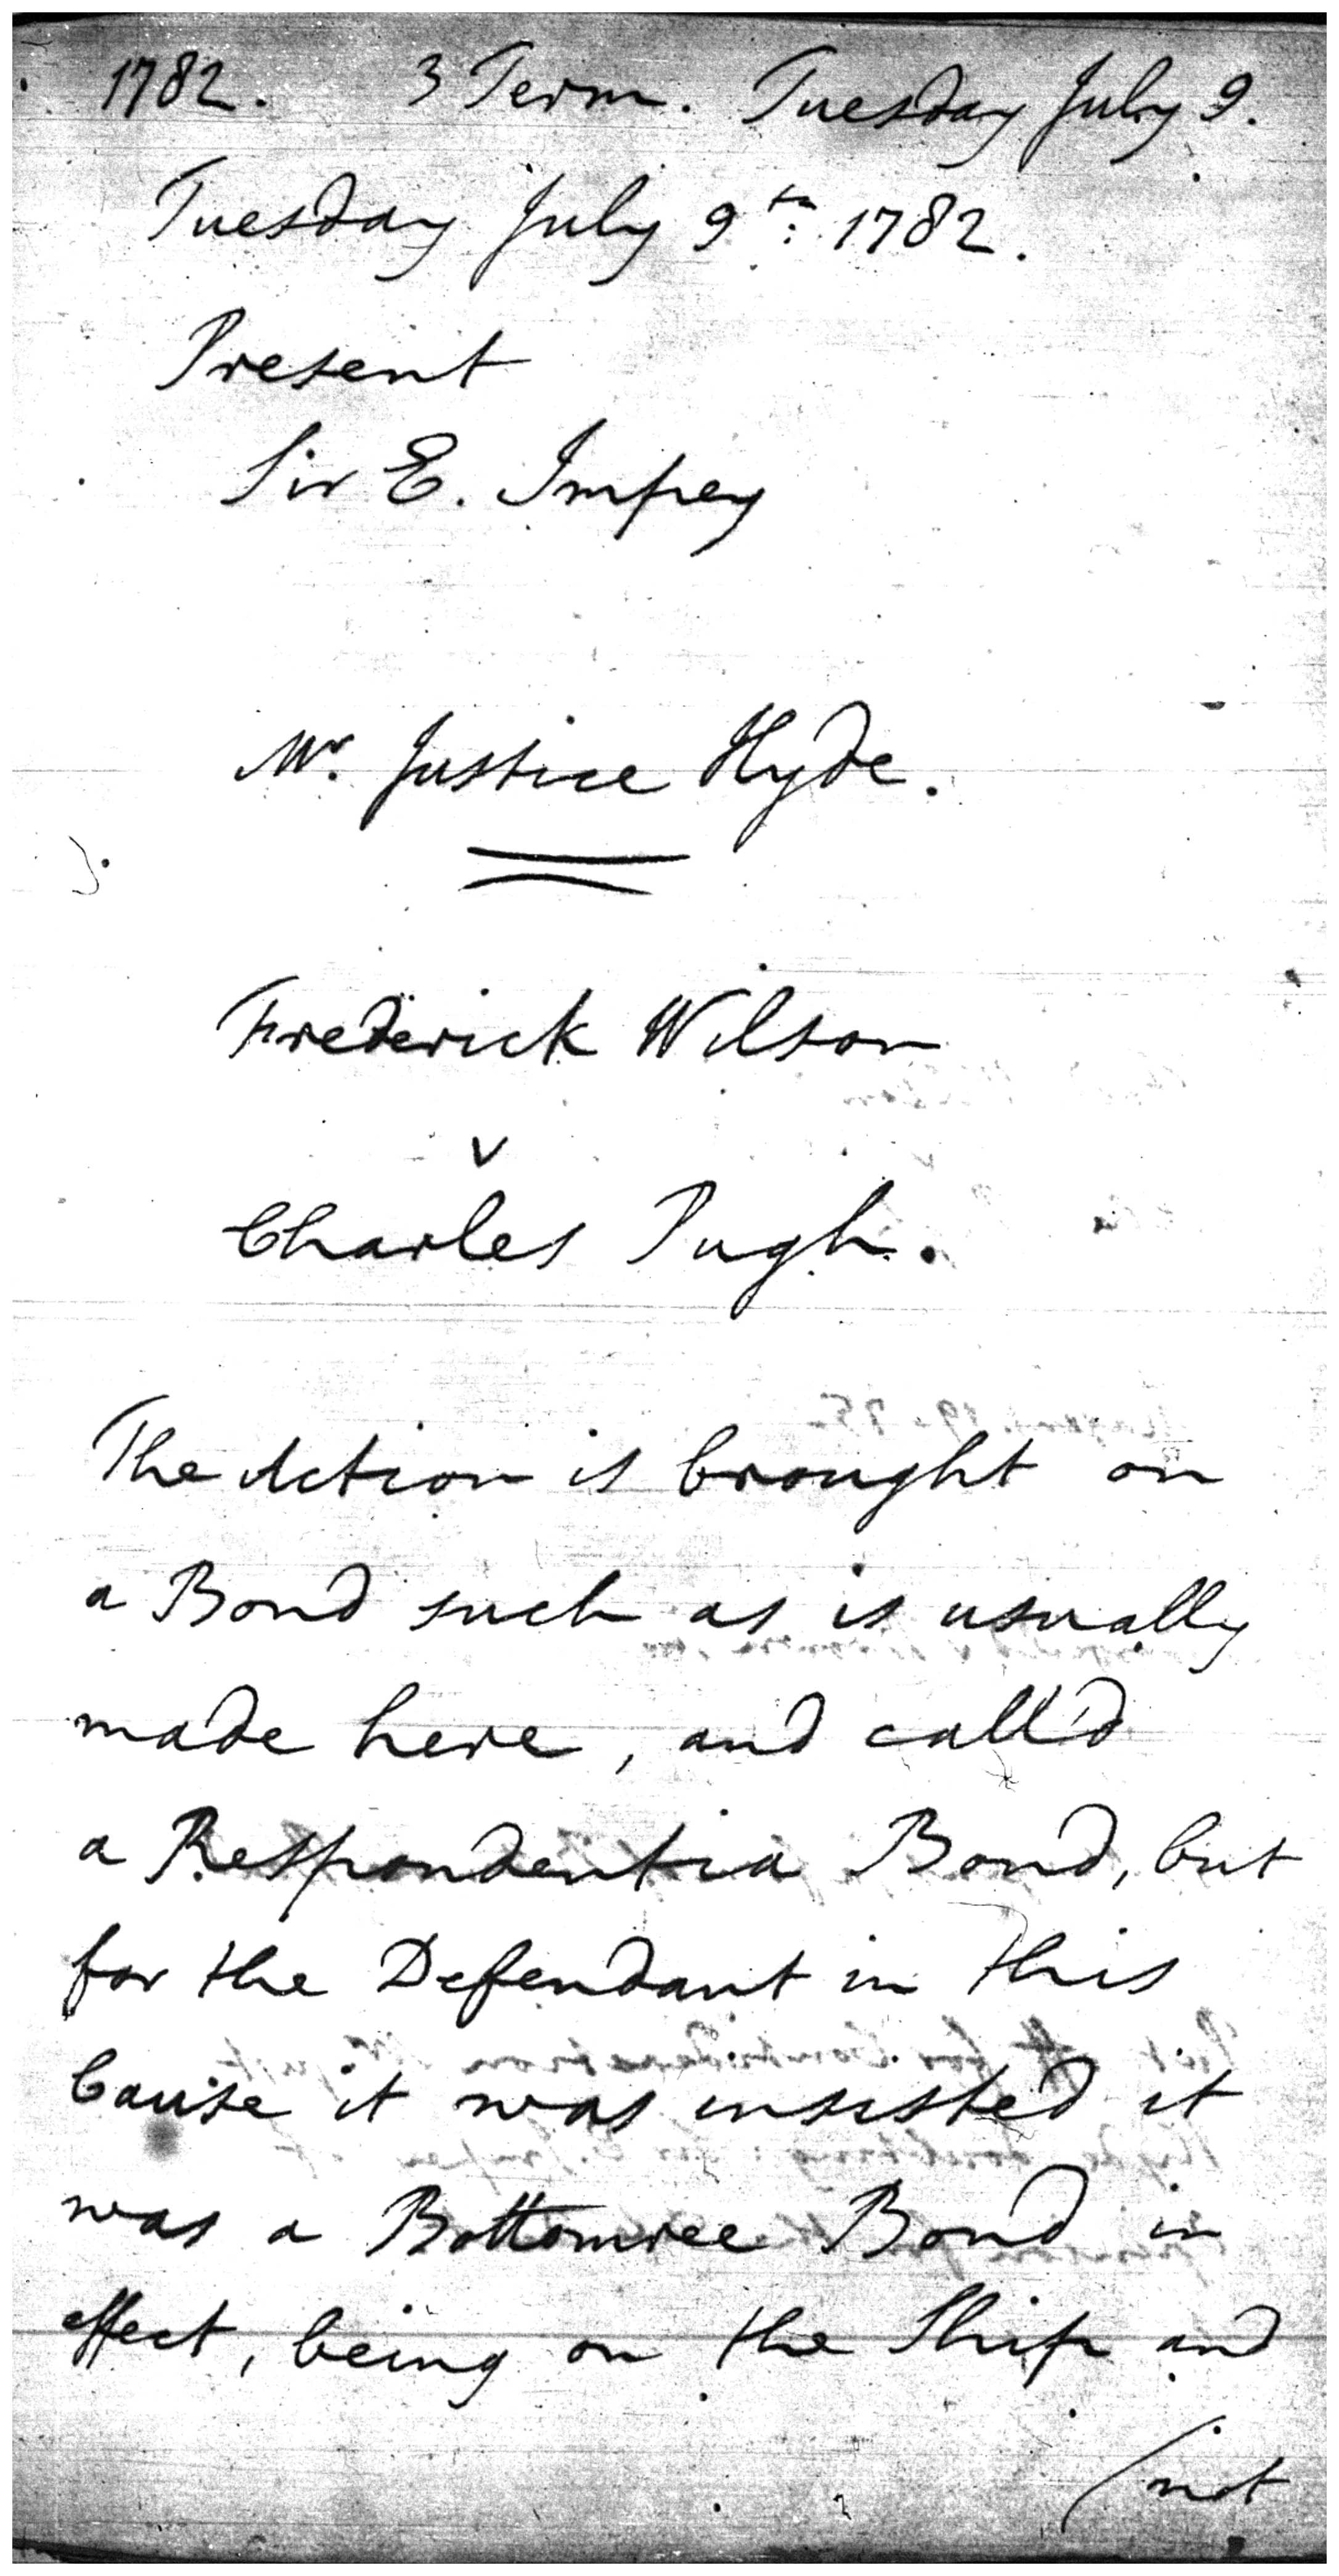 1782. 3 Term. Tuesday July 9.
Tuesday July 9th: 1782.
Present
Sir E. Impey
Mr. Justice Hyde.
Frederick Wilson
v
Charles Pugh.
The Action is brought on
a Bond such as is usually
made here, and call'd
a Respondentia Bond, but
for the Defendant in this
Cause it was insisted it
was a Bottomree Bond in
effect, being on the Ship and
(not